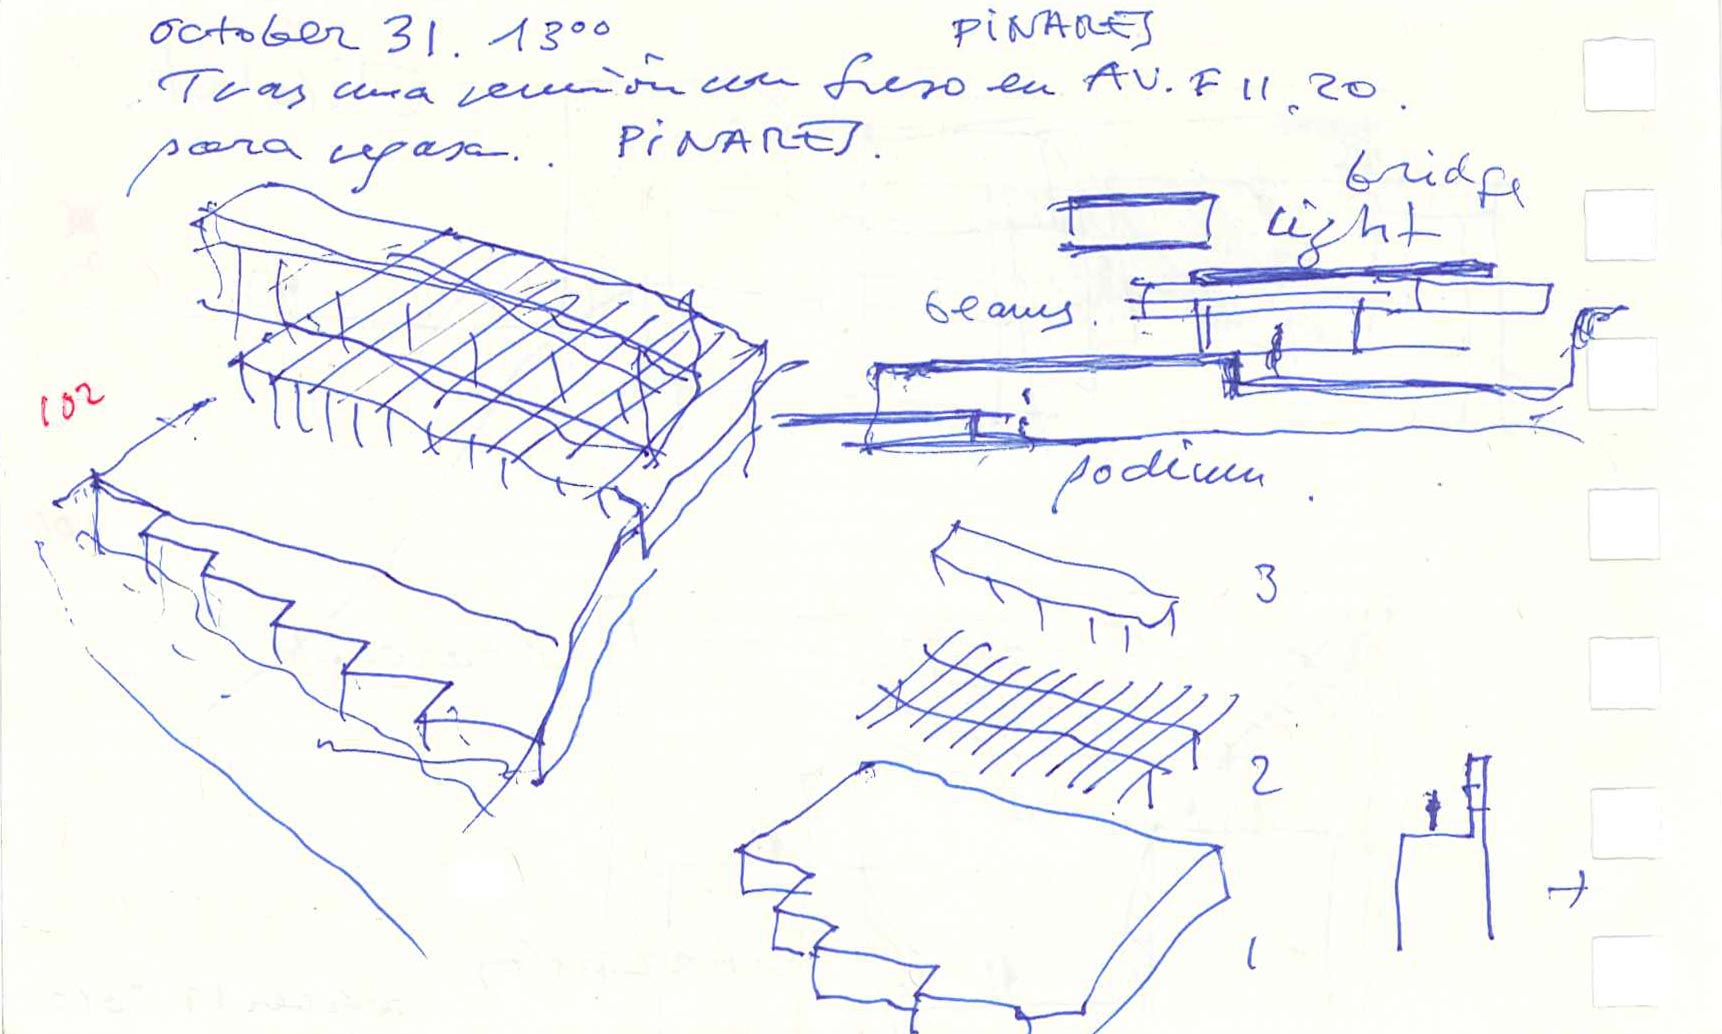 october 31. 13⁰⁰
PINARES
Tras una reunión con freso en AV. F II. 20.
para vegasa.. PINARES.
bridge
light
beams.
podium.
102
3
2
1